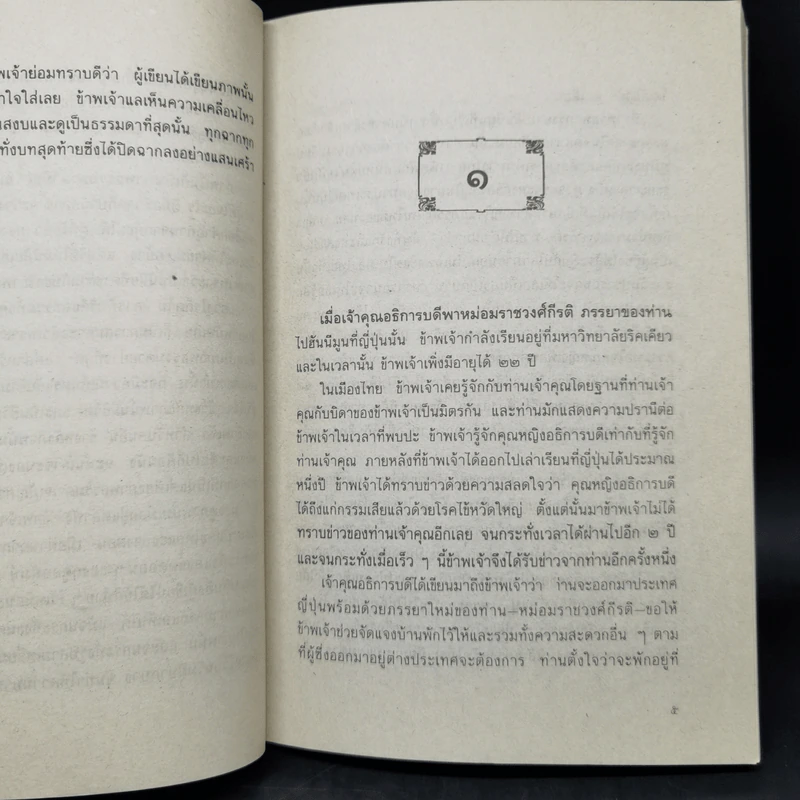 พเจ้าย่อมทราบดีว่า ผู้เขียนได้เขียนภาพนั้น
าใจใส่เลย ข้าพเจ้าแลเห็นความเคลื่อนไหว
สงบและดูเป็นธรรมดาที่สุดนั้น ทุกฉากทุก
ทั่งบทสุดท้ายซึ่งได้ปิดฉากลงอย่างแสนเศร้า
๑
เมื่อเจ้าคุณอธิการบดีพาหม่อมราชวงศ์กีรติ ภรรยาของท่าน
ไปฮันนีมูนที่ญี่ปุ่นนั้น ข้าพเจ้ากำลังเรียนอยู่ที่มหาวิทยาลัยริคเคียว
และในเวลานั้น ข้าพเจ้าเพิ่งมีอายุได้ ๒๒ ปี
ในเมืองไทย ข้าพเจ้าเคยรู้จักกับท่านเจ้าคุณโดยฐานที่ท่านเจ้า
คุณกับบิดาของข้าพเจ้าเป็นมิตรกัน และท่านมักแสดงความปรานีต่อ
ข้าพเจ้าในเวลาที่พบปะ ข้าพเจ้ารู้จักคุณหญิงอธิการบดีเท่ากับที่รู้จัก
ท่านเจ้าคุณ ภายหลังที่ข้าพเจ้าได้ออกไปเล่าเรียนที่ญี่ปุ่นได้ประมาณ
หนึ่งปี ข้าพเจ้าได้ทราบข่าวด้วยความสลดใจว่า คุณหญิงอธิการบดี
ได้ถึงแก่กรรมเสียแล้วด้วยโรคไข้หวัดใหญ่ ตั้งแต่นั้นมาข้าพเจ้าไม่ได้
ทราบข่าวของท่านเจ้าคุณอีกเลย จนกระทั่งเวลาได้ผ่านไปอีก ๒ ปี
และจนกระทั่งเมื่อเร็ว ๆ นี้ข้าพเจ้าจึงได้รับข่าวจากท่านอีกครั้งหนึ่ง
เจ้าคุณอธิการบดีได้เขียนมาถึงข้าพเจ้าว่า ท่านจะออกมาประเทศ
ญี่ปุ่นพร้อมด้วยภรรยาใหม่ของท่าน–หม่อมราชวงศ์กีรติ–ขอให้
ข้าพเจ้าช่วยจัดแจงบ้านพักไว้ให้และรวมทั้งความสะดวกอื่น ๆ ตาม
ที่ผู้ซึ่งออกมาอยู่ต่างประเทศจะต้องการ ท่านตั้งใจว่าจะพักอยู่ที่
๕